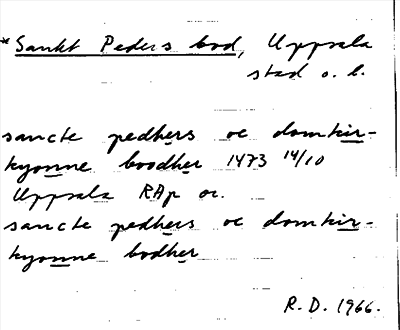 *Sankt Peders bod, Uppsala
stad o. l.
sancte pedhers oc domkir-
kyonne boodher 1473 14/10
Uppsala RAp or.
sancte pedhers oc domkir-
kyonne bodher
R.D. 1966.